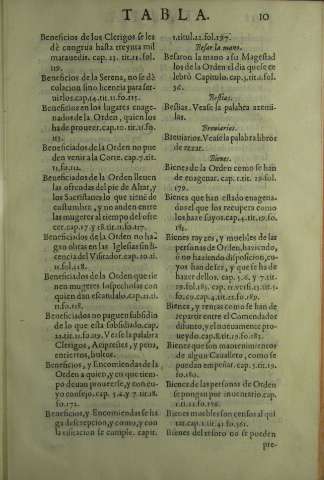 TABLA. 10
Beneficios de los Clerigos se les
dè congrua hasta treynta mil
marauedis. cap. 23. tit. 11. fol.
119.
Beneficios de la Serena, no se dè
colacion sino licencia para ser-
uirlos. cap. 14. tit. 11. fo. 115.
Beneficios en los lugares enage-
nados de la Orden, quien los
ha de proueer. cap. 10. tit. 11. fo.
113.
Beneficiados de la Orden no pue
den venir a la Corte. cap. 7. tit.
11. fo. 112.
Beneficiados de la Orden lleuen
las ofrendas del pie de Altar, y
los Sacristanes lo que tienē de
costumbre, y no anden entre
las mugeres al tiempo del ofre
cer. cap. 17. y 18. tit. 11. fo. 117.
Beneficiados de la Orden no ha-
gan obras en las Iglesias sin li-
cencia del Visitador. cap. 20. ti.
11. fol. 118.
Beneficiados de la Orden que tie
nen mugeres sospechosas con
quien dan escandalo. cap. 21. ti.
11. fo. 118.
Beneficiados no paguen subsidio
de lo que esta subsidado. cap.
22. tit. 11. fo. 119. Vease la palabra
Clerigos, Aciprestes, y pena,
entierros, bultos.
Beneficios, y Encomiendas de la
Orden a quien, y en que tiem-
po deuan proueerse, y con cu-
yo consejo. cap. 5. 6. y 7. tit. 18.
fo. 172.
Beneficios, y Encomiendas se ha
ga descripcion, y como, y con
la tassacion se cumple. capit.
1. titul. 22. fol. 197.
Besar la mano.
Besaron la mano a su Magestad
los de la Orden el dia que se ce
lebrò Capitulo. cap. 3. tit. 1. fol.
36.
Bestias.
Bestias. Vease la palabra azemi-
las.
Breuiarios.
Breuiarios. Vease la palabra libros
de rezar.
Bienes.
Bienes de la Orden como se han
de enagenar. cap. 1. tit. 19. fol.
179.
Bienes que han estado enagena-
dos el que los recupera como
los haze suyos. cap. 4. tit. 19. fo.
181.
Bienes rayzes, y muebles de las
personas de Orden, haziendo,
ò no haziendo disposicion, cu-
yos han de ser, y que se ha de
hazer dellos. cap. 5. 6. y 7. tit.
19. fol. 183. cap. 11. vers. 13. tit. 5.
fo. 69. cap. 4. tit. 22. fo. 189.
Bienes, y rentas como se han de
repartir entre el Comendador
difunto, y el nueuamente pro-
ueydo. cap. 8. tit. 19. fo. 183.
Bienes que son mantenimientos
de algun Cauallero, como se
puedan empeñar. cap. 3. tit. 19.
fo. 180.
Bienes de las personas de Orden
se pongan por inuentario. cap.
1. tit. 22. fo. 196.
Bienes muebles son censos al qui
tar. cap. 1. tit. 41. fo. 361.
Bienes del tesoro no se pueden
pre-